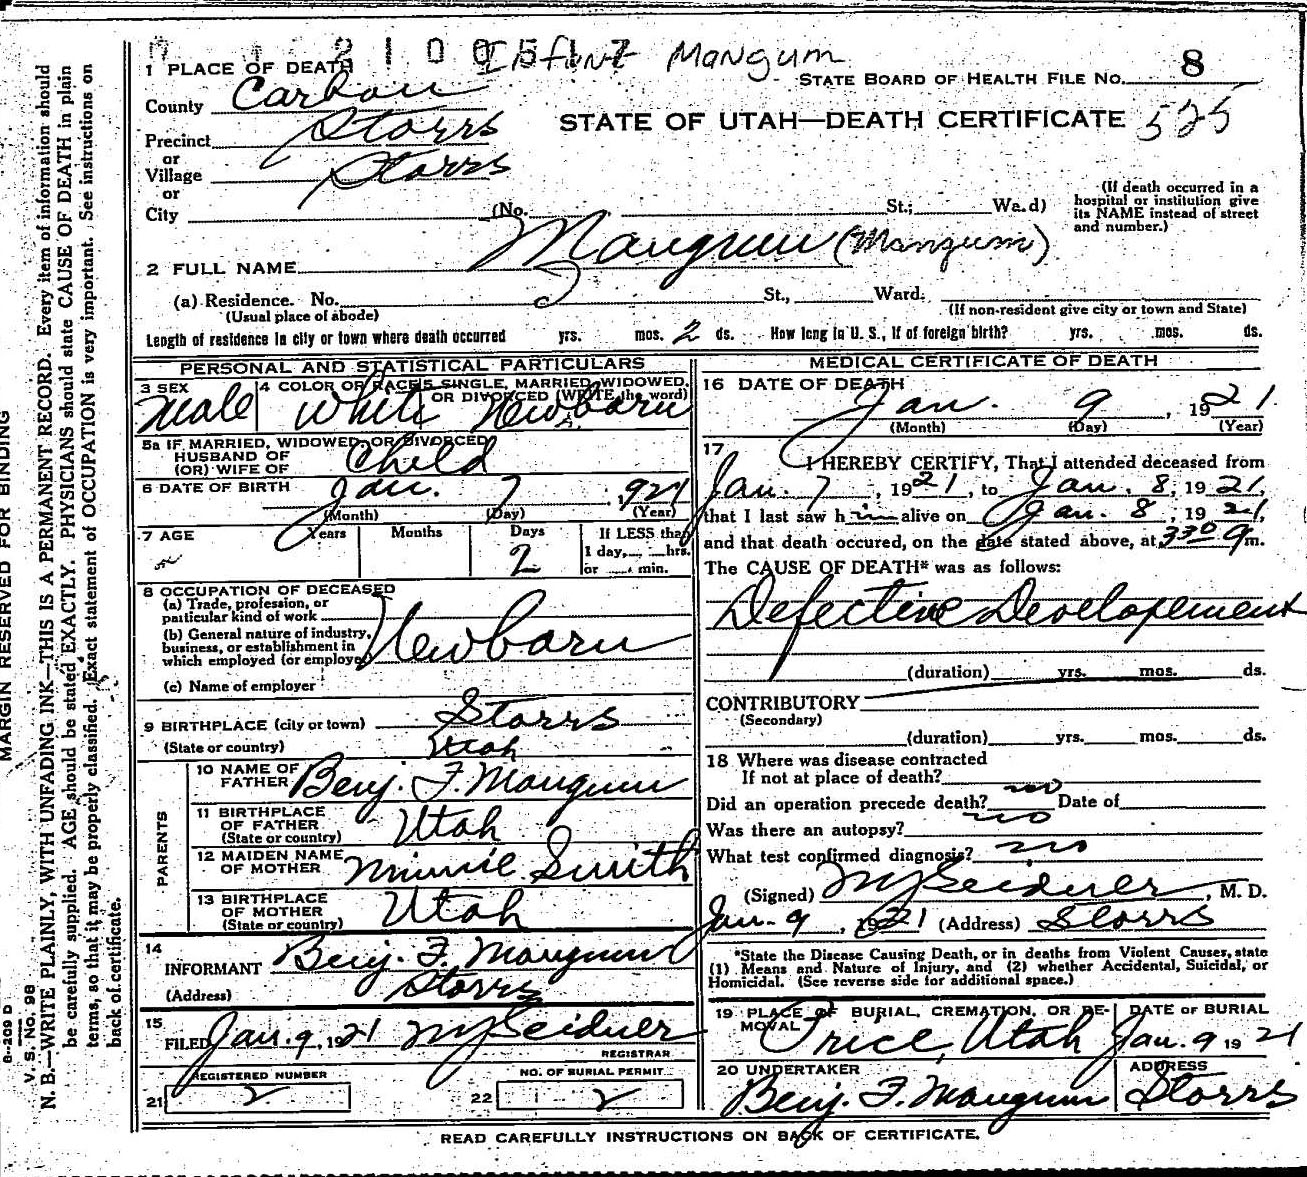 2100517 Infant Mangum
1 PLACE OF DEATH
STATE BOARD OF HEALTH FILE NO. 8
County Carbon
STATE OF UTAH—DEATH CERTIFICATE 525
Precinct Storrs
or
Village Storrs
or
City (No. St.; Ward)
(If death occurred in a hospital or institution give its NAME instead of street and number.)
2 FULL NAME Mangum (Mangum)
(a) Residence. No. St., Ward.
(Usual place of abode) (If non-resident give city or town and State)
Length of residence in city or town where death occurred yrs. mos. 2 ds. How long in U. S., if of foreign birth? yrs. mos. ds.
PERSONAL AND STATISTICAL PARTICULARS
3 SEX Male
4 COLOR OR RACE White
5 SINGLE, MARRIED, WIDOWED, OR DIVORCED (WRITE the word) Newborn
5a IF MARRIED, WIDOWED, OR DIVORCED
HUSBAND OF
(OR) WIFE OF Child
6 DATE OF BIRTH Jan. 7, 1921
(Month) (Day) (Year)
7 AGE Years Months Days 2
If LESS than
1 day, hrs.
or min.
8 OCCUPATION OF DECEASED
(a) Trade, profession, or
particular kind of work
(b) General nature of industry,
business, or establishment in
which employed (or employer) Newborn
(c) Name of employer
9 BIRTHPLACE (city or town) Storrs
(State or country) Utah
PARENTS
10 NAME OF FATHER Benj. F. Mangum
11 BIRTHPLACE OF FATHER
(State or country) Utah
12 MAIDEN NAME OF MOTHER Minnie Smith
13 BIRTHPLACE OF MOTHER
(State or country) Utah
14 INFORMANT Benj. F. Mangum
(Address) Storrs
15 FILED Jan. 9, 1921 M J Seidner
REGISTRAR
REGISTERED NUMBER
21 2
NO. OF BURIAL PERMIT
22 2
MEDICAL CERTIFICATE OF DEATH
16 DATE OF DEATH
Jan. 9, 1921.
(Month) (Day) (Year)
17 I HEREBY CERTIFY, That I attended deceased from
Jan. 7, 1921, to Jan. 8, 1921,
that I last saw him alive on Jan. 8, 1921,
and that death occured, on the date stated above, at 330 a m.
The CAUSE OF DEATH* was as follows:
Defective Developement
(duration) yrs. mos. ds.
CONTRIBUTORY
(Secondary)
(duration) yrs. mos. ds.
18 Where was disease contracted
If not at place of death?
Did an operation precede death? no Date of
Was there an autopsy? no
What test confirmed diagnosis? no
(Signed) M J Seidner, M. D.
Jan. 9, 1921 (Address) Storrs
*State the Disease Causing Death, or in deaths from Violent Causes, state
(1) Means and Nature of Injury, and (2) whether Accidental, Suicidal, or
Homicidal. (See reverse side for additional space.)
19 PLACE OF BURIAL, CREMATION, OR REMOVAL Price, Utah
DATE OF BURIAL Jan. 9 1921
20 UNDERTAKER Benj. F. Mangum
ADDRESS Storrs
READ CAREFULLY INSTRUCTIONS ON BACK OF CERTIFICATE.
MARGIN RESERVED FOR BINDING
6-209 D
V. S. No. 98
N. B.—WRITE PLAINLY, WITH UNFADING INK—THIS IS A PERMANENT RECORD. Every item of information should
be carefully supplied. AGE should be stated EXACTLY. PHYSICIANS should state CAUSE OF DEATH in plain
terms, so that it may be properly classified. Exact statement of OCCUPATION is very important. See instructions on
back of certificate.